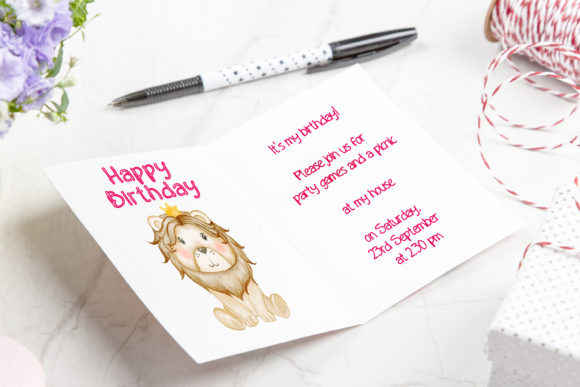 Happy
Birthday
It's my birthday!
Please join us for
party games and a picnic
at my house
on Saturday,
23rd September
at 2.30 pm